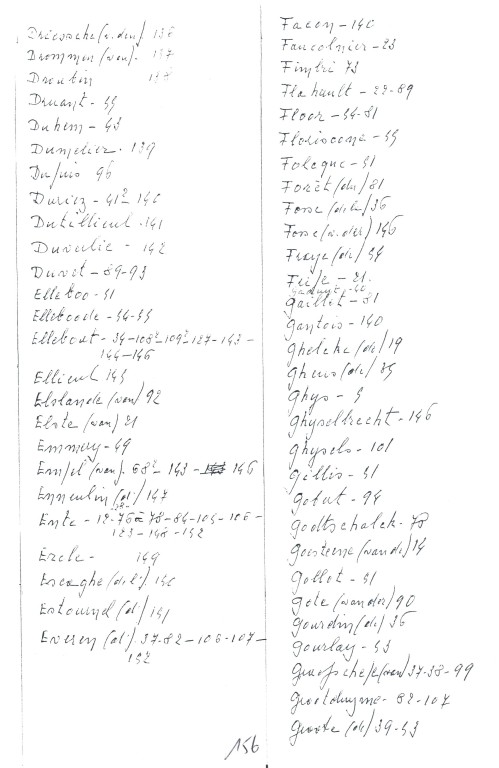 Driessche (v. den) 136
Drommen (van). 137
Droutin 138
Druant - 55
Duhem - 43
Dumelier. 139
Dupuis 96
Duriez - 41² 140
Dutillieul - 141
Duvulie - 142
Duvet - 89-93
Elleboo - 51
Elleboode - 54-55
Ellebout - 34-108²-109²-127-143-
144-146
Ellieul 145
Elslande (van) 92
Elste (van) 21
Emmery - 49
Empel (van). 68² - 143 - 146
Enneulin (d') 147
Ente - 12-76 - 78-84-104-106-
123-148-152
Ercle - 149
Escaghe (de l') 150
Estournel (d') 151
Everen (d'). 37-82-106-107-
152
Facon - 140
Faucolnier - 23
Fimbri 73
Flahault - 29-89
Floor - 54-81
Floriscone - 55
Folcque - 51
Forêt (du) 81
Fosse (de la) 36
Fosse (v. der) 146
Fraye (de) 54
Frife - 21.
Gaillet - 81
Gantois - 140
Ghelcke (de) 19
Gheus (de) 85
Ghys - 5
Ghyselbrecht - 146
Ghysels - 101
Gillis - 51
Gobut - 94
Godtschalck - 78
Goesteene (van de) 14
Gollot - 51
Gote (van der) 90
Gourdin (de) 36
Gourlay - 53
Graefschepe (van) 37-38-99
Grootduyme - 82-107
Groote (de) 39-53
156